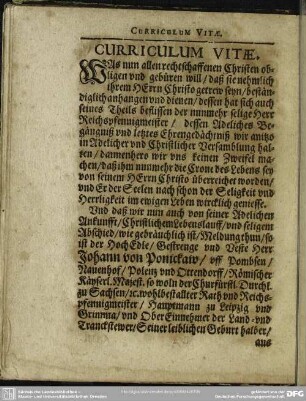 CURRICULUM VITÆ.
CURRICULUM VITÆ.
WAs nun allen rechtschaffenen Christen ob-
ligen vnd gebüren will / daß sie nehmlich
ihrem HErrn Christo getrew seyn / bestän-
diglich anhangen vnd dienen / dessen hat sich auch
seines Theils beflissen der nunmehr selige Herr
Reichspfennigmeister / dessen Adeliches Be-
gängnüß vnd letztes Ehrengedächtniß wir anitzo
in Adelicher vnd Christlicher Versamblung hal-
ten / dannenhero wir vns keinen Zweifel ma-
chen / daß ihm nunmehr die Crone des Lebens sey
von seinem HErrn Christo überreichet worden /
vnd Er der Seelen nach schon der Seligkeit vnd
Herrligkeit im ewigen Leben wircklich geniesse.
Vnd daß wir nun auch von seiner Adelichen
Ankunfft / Christlichem Lebenslauff / vnd seligem
Abschied / wie gebräuchlich ist / Meldung thun / so
ist der Hoch Edle / Gestrenge vnd Veste Herr
Johann von Ponickaw / vff Pombsen /
Nauenhof / Polenz vnd Ottendorff / Römischer
Käyserl. Majest. so woln der Churfürstl. Durchl.
zu Sachsen / ꝛc. wohlbestallter Rath vnd Reichs-
pfennigmeister / Hauptmann zu Leipzig vnd
Grimma / vnd Ober Einnehmer der Land- vnd
Tranckstewer / Seiner leiblichen Geburt halber /
aus